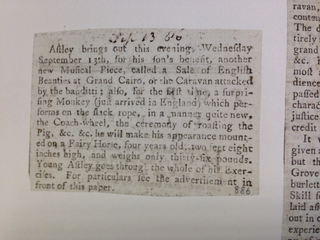 Sep 13 86
Astley brings out this evening, Wednesday
September 13th, for his son's benefit, another
new Musical Piece, called a Sale of English
Beauties at Grand Cairo, or the Caravan attacked
by the banditti; also, for the first time, a surpri-
sing Monkey (just arrived in England) which per-
forms on the slack rope, in a manner quite new,
the Coach-wheel, the ceremony of roasting the
Pig, &c. &c. he will make his appearance mount-
ed on a Fairy Horse, four years old, two feet eight
inches high, and weighs only thirty-six pounds.
Young Astley goes through the whole of his Exer-
cises. For particulars see the advertisement in
front of this paper.
886
ravan,
The d
tirely
great
&c.
most
dience
passed
charact
justice
credit
It w
given
but th
Grove
burlett
Skill
laid
out in